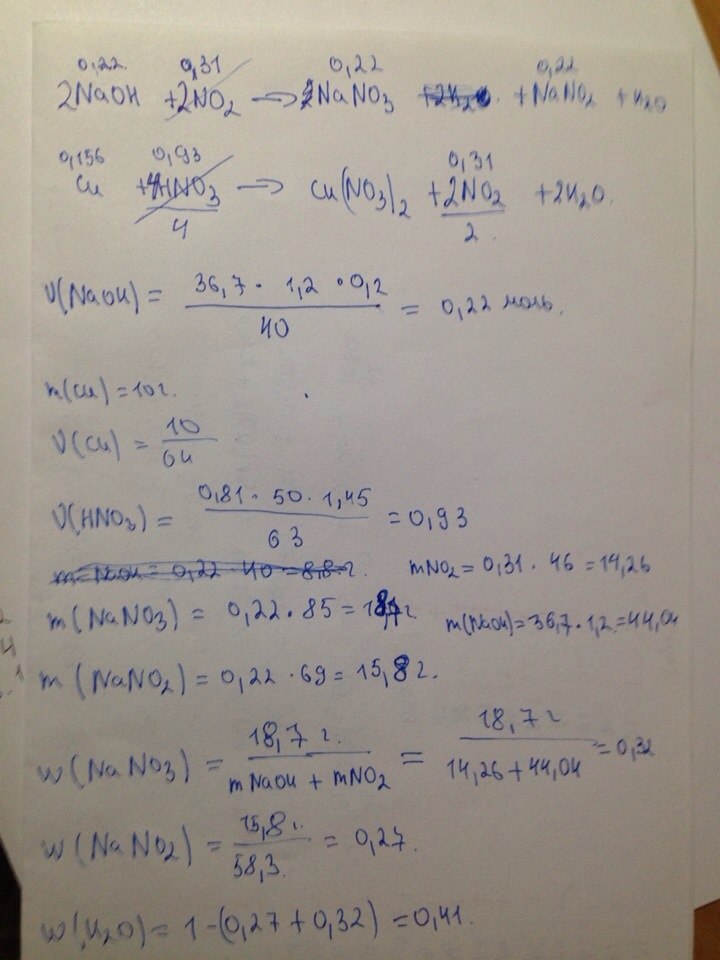 0,22 0,31 0,22 0,22
2NaOH + 2NO₂ → NaNO₃ + NaNO₂ + H₂O
0,156 0,93 0,31
Cu + 4HNO₃ → Cu(NO₃)₂ + 2NO₂ + 2H₂O
4 2
ν(NaOH) = 36,7 · 1,2 · 0,2 / 40 = 0,22 моль.
m(Cu) = 10г.
ν(Cu) = 10 / 64
ν(HNO₃) = 0,81 · 50 · 1,45 / 63 = 0,93
m NaOH = 0,22 · 40 = 8,8 г.
mNO₂ = 0,31 · 46 = 14,26
m(NaNO₃) = 0,22 · 85 = 18,7 г
m(NaOH) = 36,7 · 1,2 = 44,04
m(NaNO₂) = 0,22 · 69 = 15,8 г.
w(NaNO₃) = 18,7 г. / mNaOH + mNO₂ = 18,7 г / 14,26 + 44,04 = 0,32
w(NaNO₂) = 15,8 г. / 58,3. = 0,27.
w(H₂O) = 1 - (0,27 + 0,32) = 0,41.